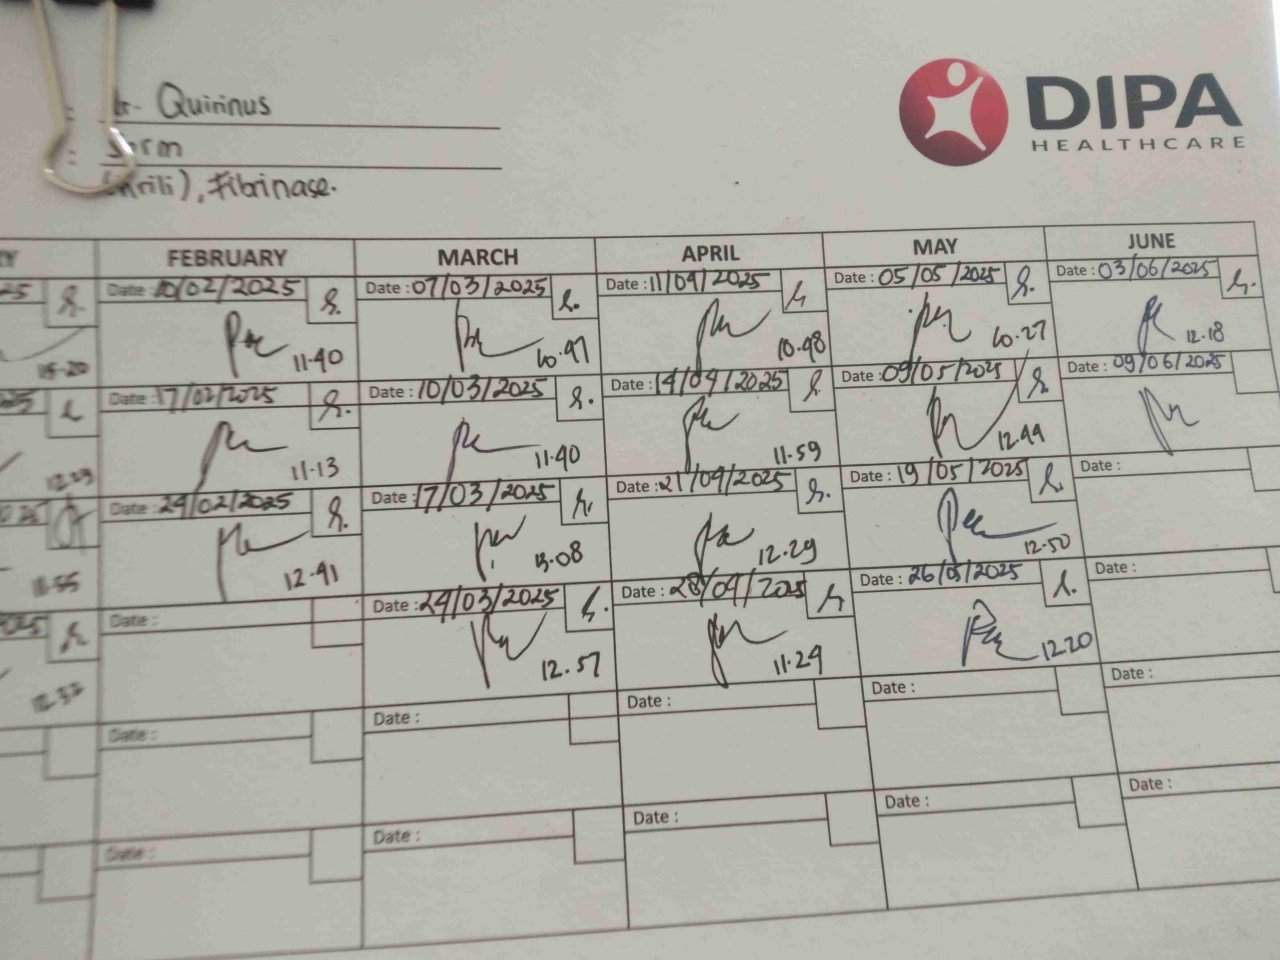 : Dr. Quirinus
:
DIPA
HEALTHCARE
(Krili), Fibrinase.
FEBRUARY MARCH APRIL MAY JUNE
Date : 10/02/2025 Date : 07/03/2025 Date : 11/04/2025 Date : 05/05/2025 Date : 03/06/2025
15.20 11.40 10.47 10.48 10.27 12.18
Date : 17/02/2025 Date : 10/03/2025 Date : 14/04/2025 Date : 09/05/2025 Date : 09/06/2025
12.23 11.13 11.40 11.59 12.44
Date : 24/02/2025 Date : 17/03/2025 Date : 21/04/2025 Date : 19/05/2025 Date :
11.55 12.41 13.08 12.29 12.50
Date : Date : 24/03/2025 Date : 28/04/2025 Date : 26/05/2025 Date :
12.32 12.57 11.24 12.20
Date : Date : Date : Date : Date :
Date : Date : Date : Date : Date :